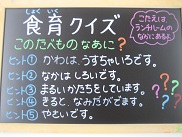 しょく いく
食育クイズ
このたべものなあに?
こたえは、
ランチルームの
なかにあるよ
ヒント① かわは、うすちゃいろです。
ヒント② なかはしろいです。
ヒント③ まるいかたちをしています。
ヒント④ きると、なみだがでます。
ヒント⑤ やさいです。
???